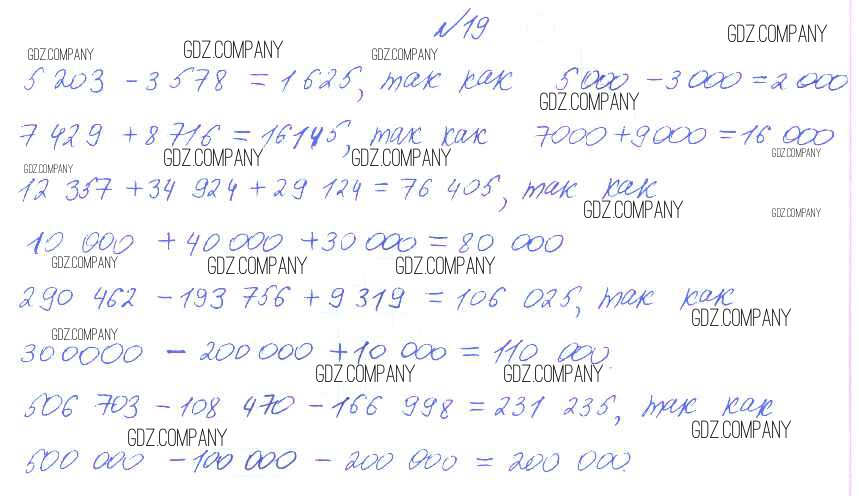 №19
GDZ.COMPANY GDZ.COMPANY GDZ.COMPANY GDZ.COMPANY
5 203 - 3 578 = 1 625, так как 5 000 - 3 000 = 2 000
GDZ.COMPANY
7 429 + 8 716 = 16145, так как 7000 + 9000 = 16 000
GDZ.COMPANY GDZ.COMPANY GDZ.COMPANY GDZ.COMPANY
12 357 + 34 924 + 29 124 = 76 405, так как
GDZ.COMPANY GDZ.COMPANY
10 000 + 40 000 + 30 000 = 80 000
GDZ.COMPANY GDZ.COMPANY GDZ.COMPANY
290 462 - 193 756 + 9 319 = 106 025, так как
GDZ.COMPANY GDZ.COMPANY
300000 - 200 000 + 10 000 = 110 000.
GDZ.COMPANY GDZ.COMPANY
506 703 - 108 470 - 166 998 = 231 235, так как
GDZ.COMPANY GDZ.COMPANY
500 000 - 100 000 - 200 000 = 200 000.